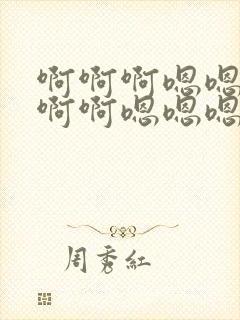 啊啊啊嗯嗯
啊啊嗯嗯嗯
周秀红